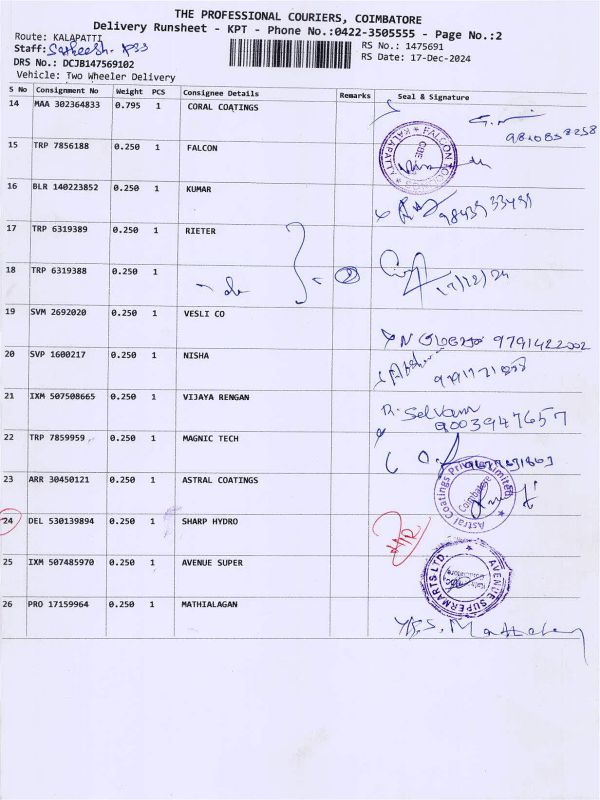 THE PROFESSIONAL COURIERS, COIMBATORE
Delivery Runsheet - KPT - Phone No.:0422-3505555 - Page No.:2
Route: KALAPATTI
Staff: Satheesh. PSS
RS No.: 1475691
DRS No.: DCJB147569102
RS Date: 17-Dec-2024
Vehicle: Two Wheeler Delivery
S No Consignment No Weight PCS Consignee Details Remarks Seal & Signature
14 MAA 302364833 0.795 1 CORAL COATINGS
15 TRP 7856188 0.250 1 FALCON
KALAPATTI
CBE
16 BLR 140223852 0.250 1 KUMAR
17 TRP 6319389 0.250 1 RIETER
18 TRP 6319388 0.250 1 - do 2 17/12/24
19 SVM 2692020 0.250 1 VESLI CO
9791422002
20 SVP 1600217 0.250 1 NISHA
21 IXM 507508665 0.250 1 VIJAYA RENGAN
R. Selvam
9003947657
22 TRP 7859959 0.250 1 MAGNIC TECH
23 ARR 30450121 0.250 1 ASTRAL COATINGS
Astral Coatings Private Limited
Coimbatore
24 DEL 530139894 0.250 1 SHARP HYDRO
25 IXM 507485970 0.250 1 AVENUE SUPER
AVENUE SUPERMARTS LTD.
26 PRO 17159964 0.250 1 MATHIALAGAN